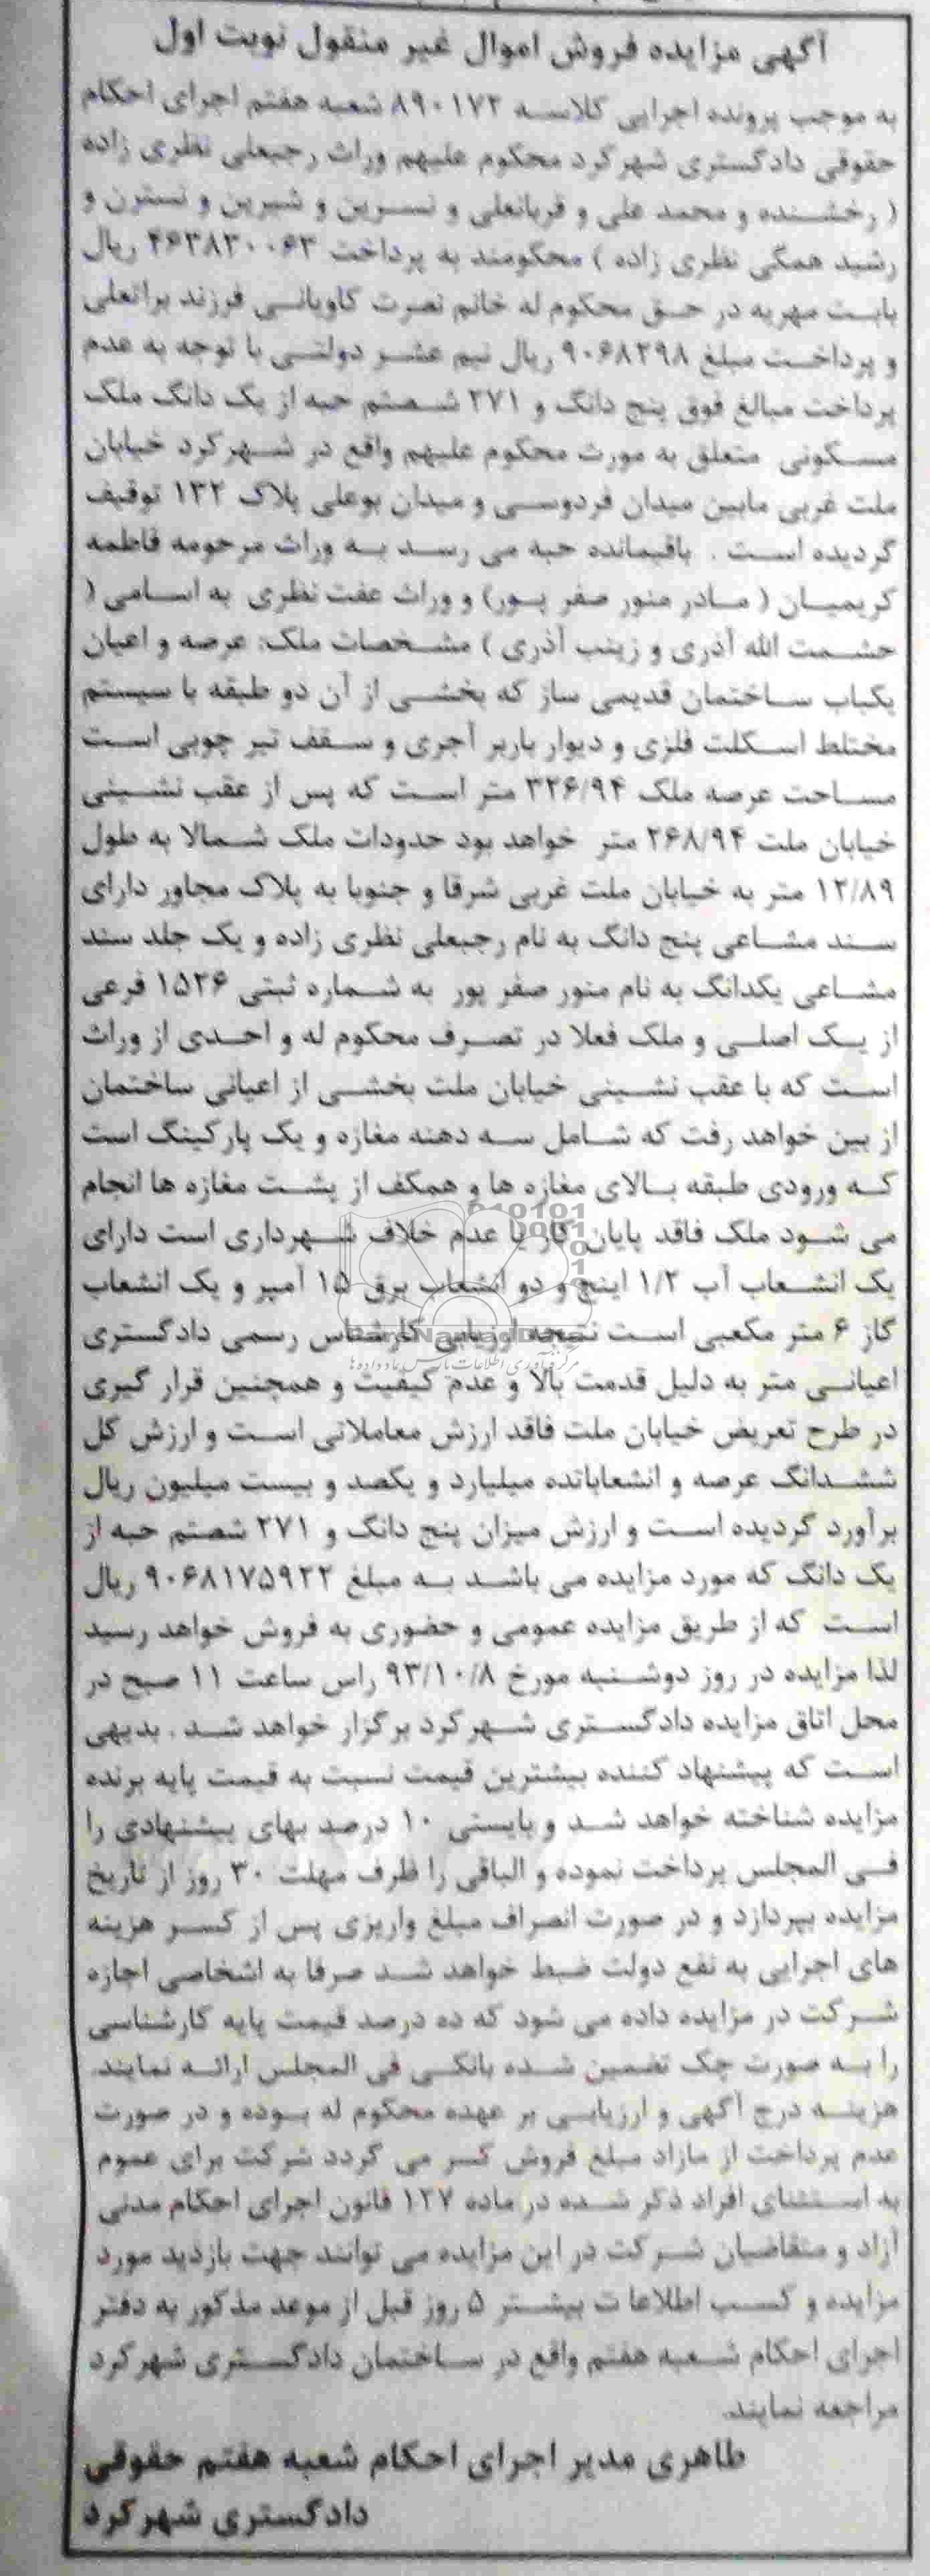 آگهی مزایده فروش اموال غیر منقول نوبت اول
به موجب پرونده اجرایی کلاسه ۸۹۰۱۷۲ شعبه هفتم اجرای احکام
حقوقی دادگستری شهرکرد محکوم علیهم وراث رجبعلی نظری زاده
( رخشنده و محمد علی و قربانعلی و نسرین و شیرین و نسترن و
رشید همگی نظری زاده ) محکومند به پرداخت ۴۶۳۸۳۰۰۶۳ ریال
بابت مهریه در حق محکوم له خانم نصرت کاویانی فرزند براتعلی
و پرداخت مبلغ ۹۰۶۸۲۹۸ ریال نیم عشر دولتی با توجه به عدم
پرداخت مبالغ فوق پنج دانگ و ۲۷۱ شصتم حبه از یک دانگ ملک
مسکونی متعلق به مورث محکوم علیهم واقع در شهرکرد خیابان
ملت غربی مابین میدان فردوسی و میدان بوعلی پلاک ۱۳۲ توقیف
گردیده است . باقیمانده حبه می رسد به وراث مرحومه فاطمه
کریمیان ( مادر منور صفر پور) و وراث عفت نظری به اسامی (
حشمت الله آذری و زینب آذری ) مشخصات ملک: عرصه و اعیان
یکباب ساختمان قدیمی ساز که بخشی از آن دو طبقه با سیستم
مختلط اسکلت فلزی و دیوار باربر آجری و سقف تیر چوبی است
مساحت عرصه ملک ۳۲۶/۹۴ متر است که پس از عقب نشینی
خیابان ملت ۲۶۸/۹۴ متر خواهد بود حدودات ملک شمالا به طول
۱۲/۸۹ متر به خیابان ملت غربی شرقا و جنوبا به پلاک مجاور دارای
سند مشاعی پنج دانگ به نام رجبعلی نظری زاده و یک جلد سند
مشاعی یکدانگ به نام منور صفر پور به شماره ثبتی ۱۵۲۶ فرعی
از یک اصلی و ملک فعلا در تصرف محکوم له و احدی از وراث
است که با عقب نشینی خیابان ملت بخشی از اعیانی ساختمان
از بین خواهد رفت که شامل سه دهنه مغازه و یک پارکینگ است
که ورودی طبقه بالای مغازه ها و همکف از پشت مغازه ها انجام
می شود ملک فاقد پایان کار یا عدم خلاف شهرداری است دارای
یک انشعاب آب ۱/۲ اینچ و دو انشعاب برق ۱۵ آمپر و یک انشعاب
گاز ۶ متر مکعبی است نتیجه ارزیابی کارشناس رسمی دادگستری
اعیانی متر به دلیل قدمت بالا و عدم کیفیت و همچنین قرار گیری
در طرح تعریض خیابان ملت فاقد ارزش معاملاتی است و ارزش کل
ششدانگ عرصه و انشعاباتده میلیارد و یکصد و بیست میلیون ریال
برآورد گردیده است و ارزش میزان پنج دانگ و ۲۷۱ شصتم حبه از
یک دانگ که مورد مزایده می باشد به مبلغ ۹۰۶۸۱۷۵۹۲۲ ریال
است که از طریق مزایده عمومی و حضوری به فروش خواهد رسید
لذا مزایده در روز دوشنبه مورخ ۹۳/۱۰/۸ راس ساعت ۱۱ صبح در
محل اتاق مزایده دادگستری شهرکرد برگزار خواهد شد . بدیهی
است که پیشنهاد کننده بیشترین قیمت نسبت به قیمت پایه برنده
مزایده شناخته خواهد شد و بایستی ۱۰ درصد بهای پیشنهادی را
فی المجلس پرداخت نموده و الباقی را ظرف مهلت ۳۰ روز از تاریخ
مزایده بپردازد و در صورت انصراف مبلغ واریزی پس از کسر هزینه
های اجرایی به نفع دولت ضبط خواهد شد صرفا به اشخاصی اجازه
شرکت در مزایده داده می شود که ده درصد قیمت پایه کارشناسی
را به صورت چک تضمین شده بانکی فی المجلس ارائه نمایند.
هزینه درج آگهی و ارزیابی بر عهده محکوم له بوده و در صورت
عدم پرداخت از مازاد مبلغ فروش کسر می گردد شرکت برای عموم
به استثنای افراد ذکر شده در ماده ۱۲۷ قانون اجرای احکام مدنی
آزاد و متقاضیان شرکت در این مزایده می توانند جهت بازدید مورد
مزایده و کسب اطلاعا ت بیشتر ۵ روز قبل از موعد مذکور به دفتر
اجرای احکام شعبه هفتم واقع در ساختمان دادگستری شهرکرد
مراجعه نمایند.
طاهری مدیر اجرای احکام شعبه هفتم حقوقی
دادگستری شهرکرد